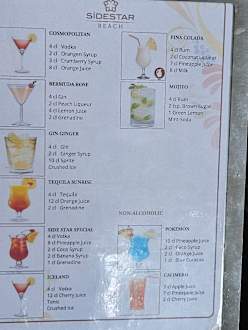 SIDESTAR
BEACH
COSMOPOLITAN
4 cl Vodka
2 cl Orangen Syrup
3 cl Cranberry Syrup
3 cl Orange Juice
BERMUDA ROSE
4 cl Gin
2 cl Peach Liqueur
4 cl Lemon Juice
2 cl Grenadine
GIN GINGER
4 cl Gin
2 cl Ginger Syrup
10 cl Sprite
Crushed Ice
TEQUILA SUNRISE
4 cl Tequila
12 cl Orange Juice
2 cl Grenadine
SIDE STAR SPECIAL
4 cl Vodka
8 cl Pineapple Juice
2 cl Coco Syrup
2 cl Banana Syrup
1 cl Grenadine
ICELAND
4 cl Vodka
12 cl Cherry Juice
Tonic
Crushed Ice
PINA COLADA
4 cl Rum
2 cl Coconut Liqueur
7 cl Pineapple Juice
6 cl Milk
MOJITO
4 cl Rum
2 tsp. Brown Sugar
1 Green Lemon
Mint Soda
NON-ALCOHOLIC
POKEMON
10 cl Pineapple Juice
2 cl Coco Syrup
2 cl Orange Juice
1 cl Blue Curacao
CALIMERO
7 cl Apple Juice
7 cl Pineapple Juice
3 cl Cherry Juice